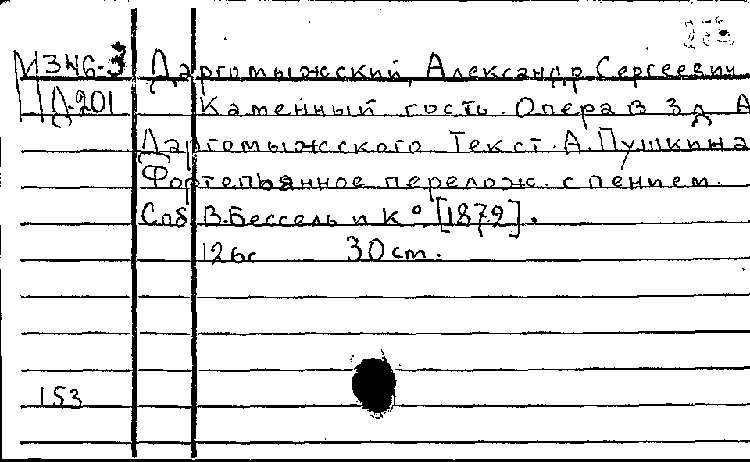 М346-3 Даргомыжский, Александр Сергеевич
Д201 Каменный гость. Опера в 3 д А
Даргомыжского. Текст. А. Пушкина
Фортепьянное перелож. с пением.
Спб В. Бессель и К° [1872].
126с 30 cm.
153